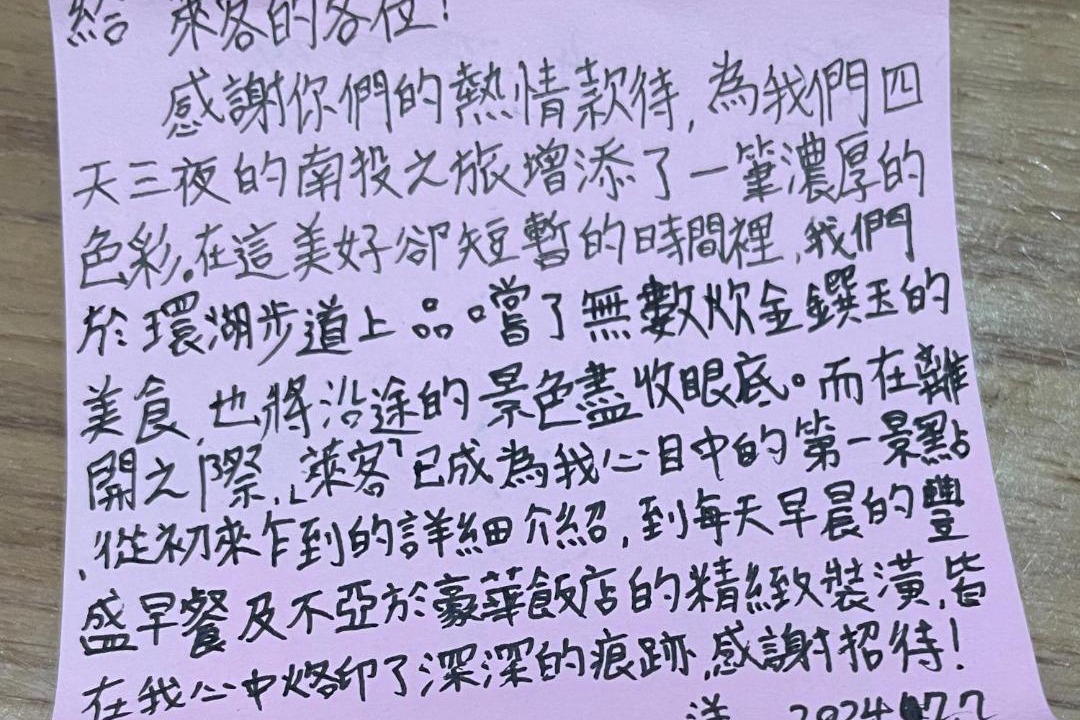 給 萊客的各位!
感謝你們的熱情款待,為我們四
天三夜的南投之旅增添了一筆濃厚的
色彩。在這美好卻短暫的時間裡,我們
於環湖步道上品嚐了無數炊金饌玉的
美食,也將沿途的景色盡收眼底。而在離
開之際,「萊客」已成為我心目中的第一景點
,從初來乍到的詳細介紹,到每天早晨的豐
盛早餐及不亞於豪華飯店的精緻裝潢,皆
在我心中烙印了深深的痕跡,感謝招待!
2024.7.2